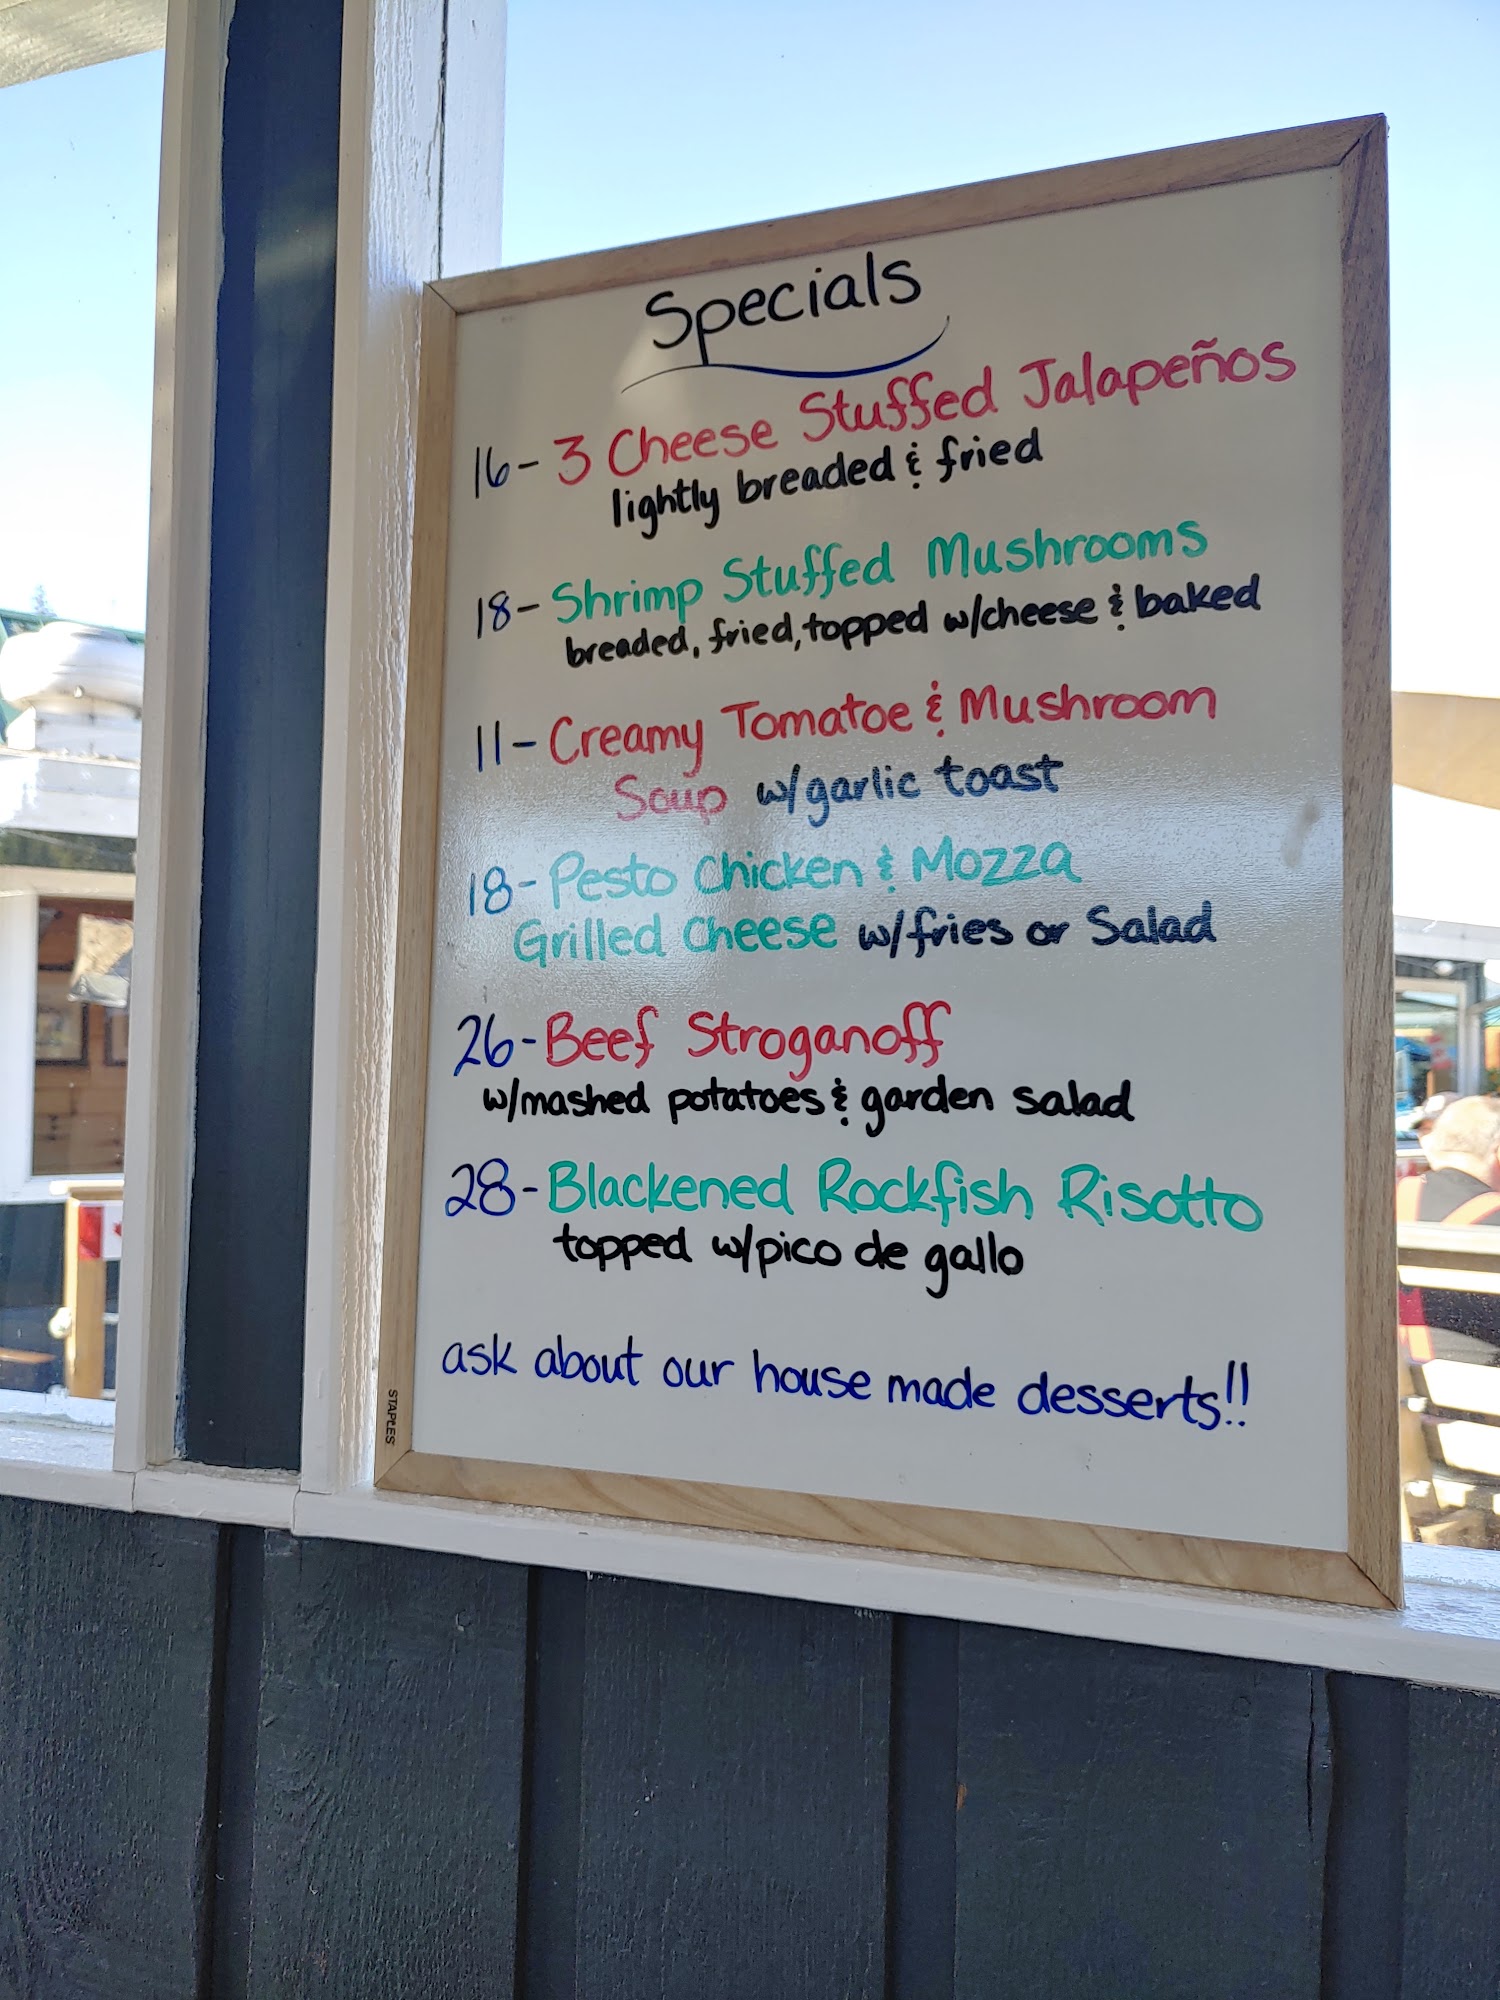 Specials
16- 3 Cheese Stuffed Jalapeños
lightly breaded & fried
18- Shrimp Stuffed Mushrooms
breaded, fried, topped w/cheese & baked
11- Creamy Tomatoe & Mushroom
Soup w/garlic toast
18- Pesto Chicken & Mozza
Grilled Cheese w/fries or Salad
26- Beef Stroganoff
w/mashed potatoes & garden salad
28- Blackened Rockfish Risotto
topped w/pico de gallo
ask about our house made desserts!!
STAPLES